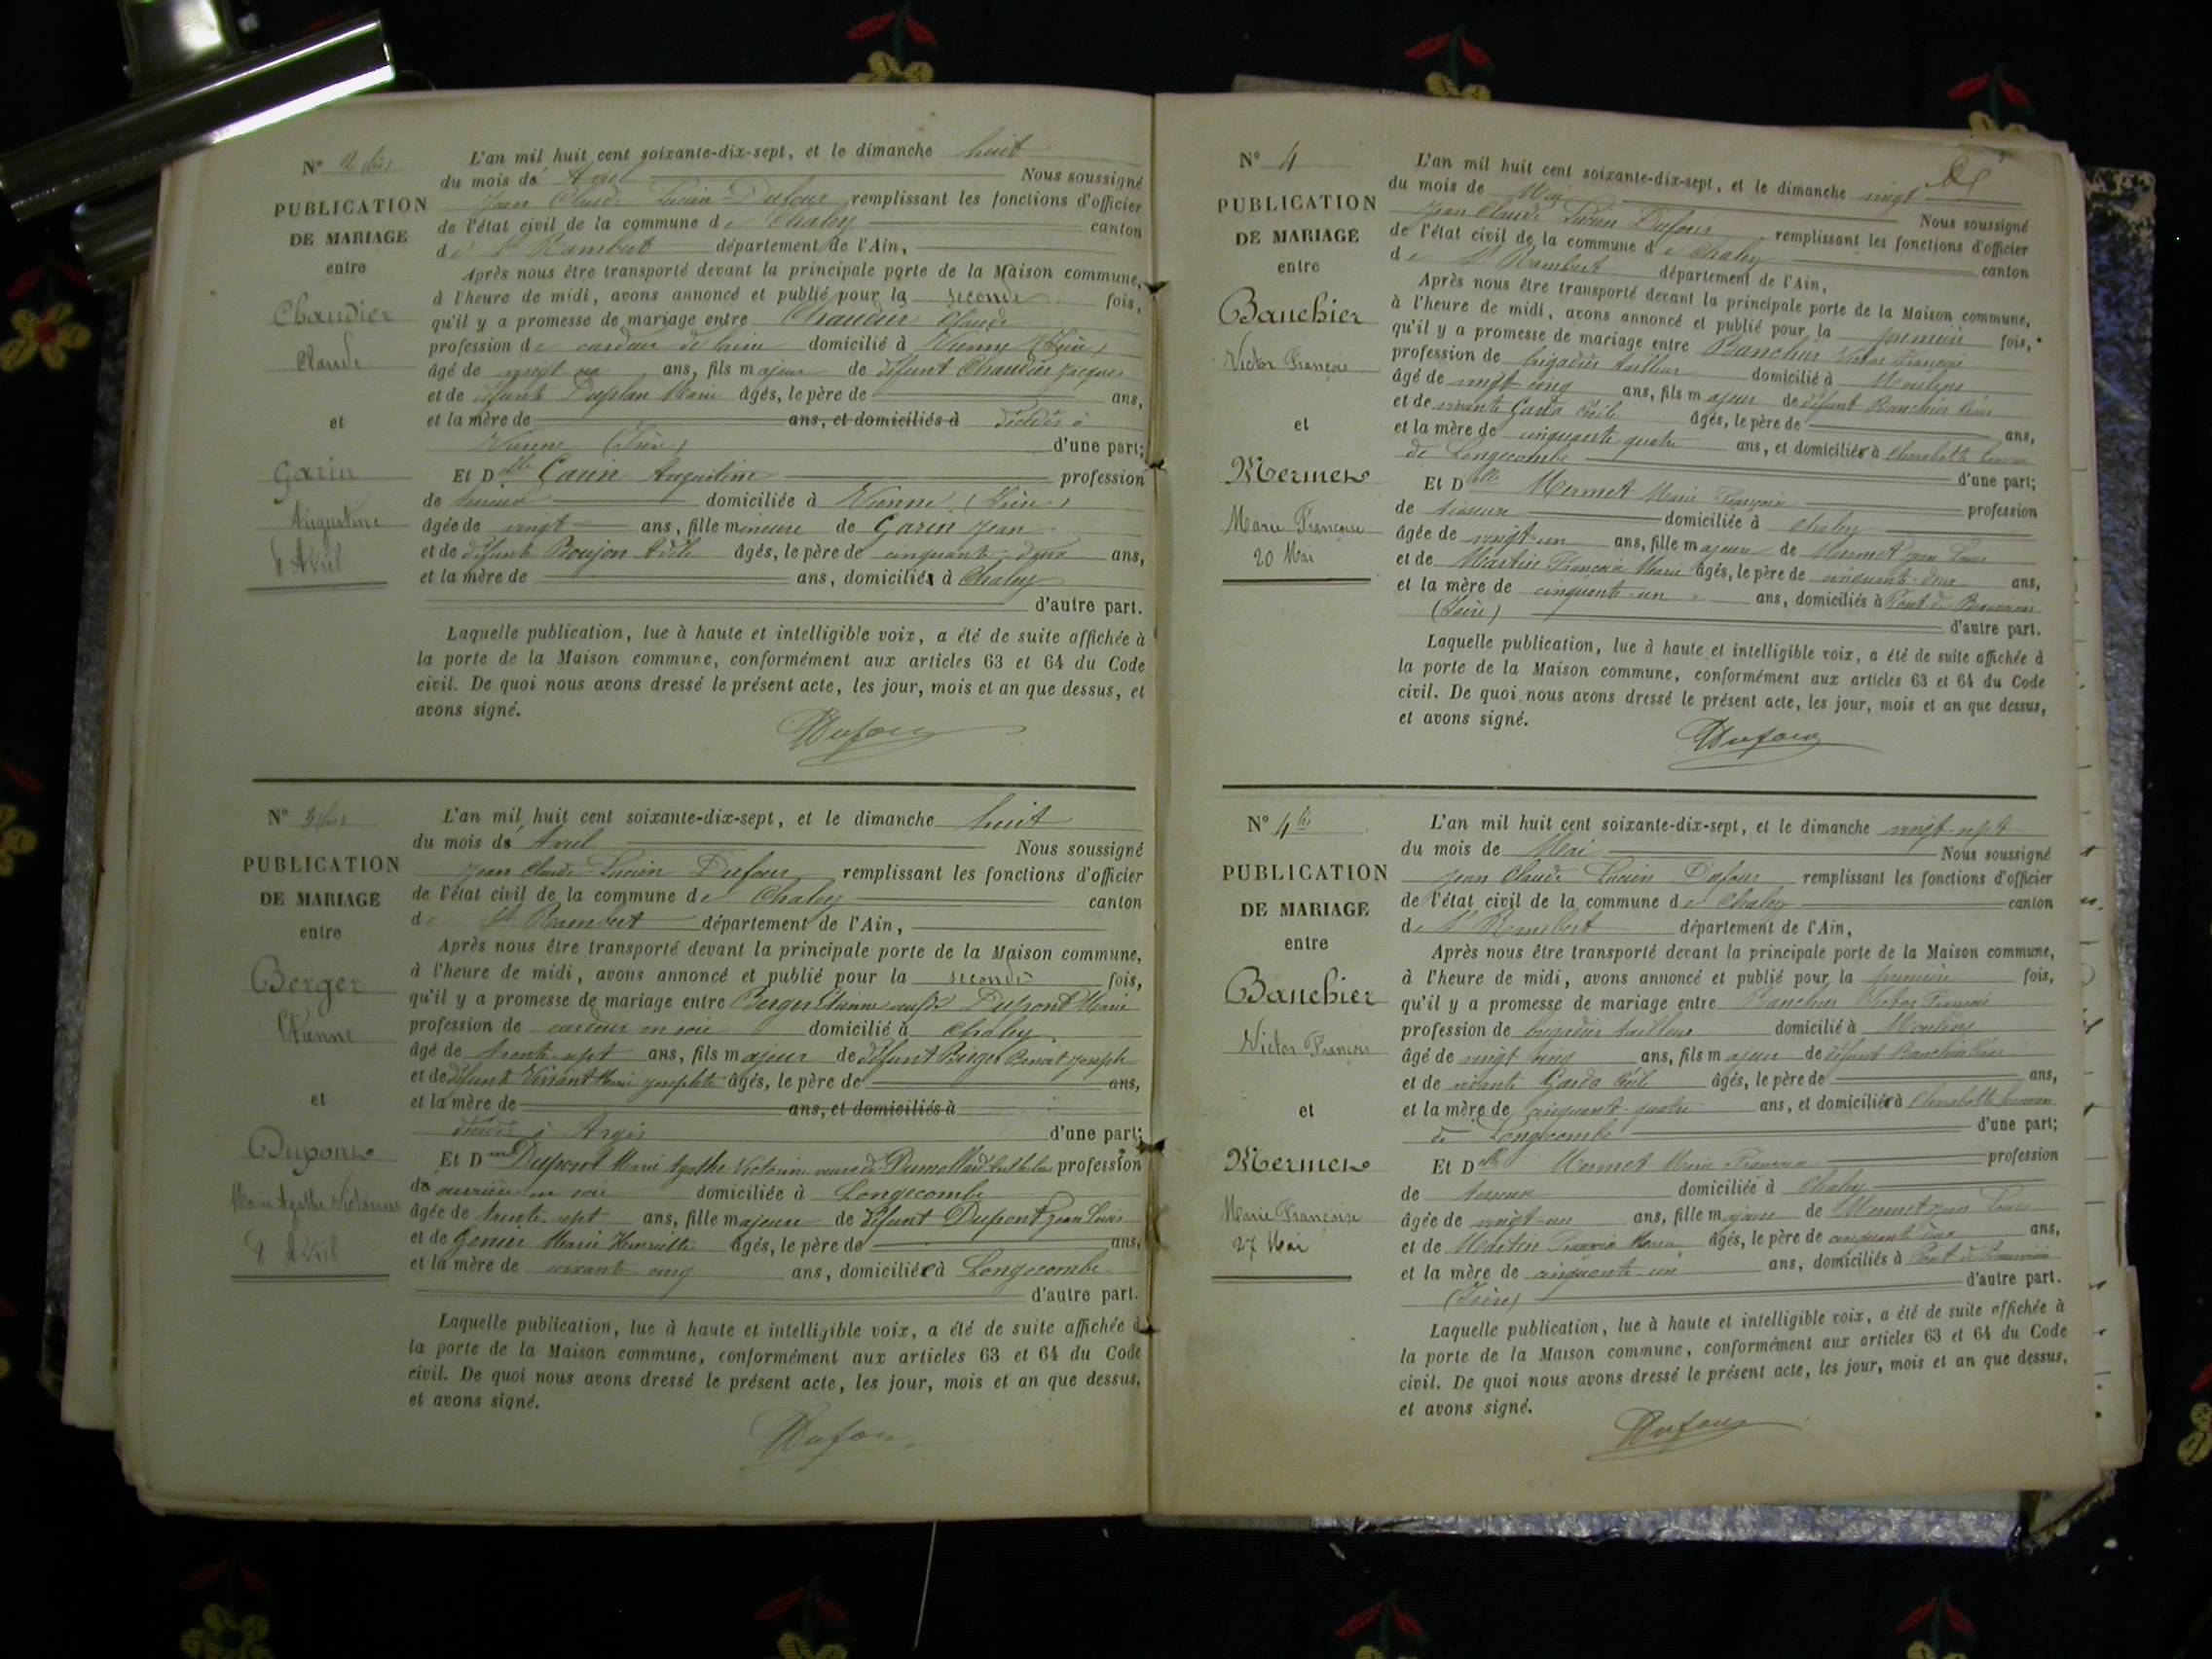 N° 2 bis
PUBLICATION
DE MARIAGE
entre
Chaudier
Claude
et
Garin
Augustine
8 Avril
L'an mil huit cent soixante-dix-sept, et le dimanche huit
du mois de Avril Nous soussigné
Jean Claude Lucien Dufour remplissant les fonctions d'officier
de l'état civil de la commune de Chaley canton
de St Rambert département de l'Ain,
Après nous être transporté devant la principale porte de la Maison commune,
à l'heure de midi, avons annoncé et publié pour la seconde fois,
qu'il y a promesse de mariage entre Chaudier Claude
profession de cardeur de laine domicilié à Vienne (Isère)
âgé de vingt un ans, fils majeur de défunt Chaudier Jacques
et de défunte Duplan Marie âgés, le père de ans,
et la mère de ans, et domiciliés à décédés à
Vienne (Isère) d'une part;
Et Dlle Garin Augustine profession
de domiciliée à Vienne (Isère)
âgée de vingt ans, fille mineure de Garin Jean
et de défunte Boujon Adèle âgés, le père de cinquante-deux ans,
et la mère de ans, domiciliés à Chaley
d'autre part.
Laquelle publication, lue à haute et intelligible voix, a été de suite affichée à
la porte de la Maison commune, conformément aux articles 63 et 64 du Code
civil. De quoi nous avons dressé le présent acte, les jour, mois et an que dessus, et
avons signé.
Dufour
N° 3 bis
PUBLICATION
DE MARIAGE
entre
Berger
Etienne
et
Dupont
Marie Agathe Victorine
8 Avril
L'an mil huit cent soixante-dix-sept, et le dimanche huit
du mois de Avril Nous soussigné
Jean Claude Lucien Dufour remplissant les fonctions d'officier
de l'état civil de la commune de Chaley canton
de St Rambert département de l'Ain,
Après nous être transporté devant la principale porte de la Maison commune,
à l'heure de midi, avons annoncé et publié pour la seconde fois,
qu'il y a promesse de mariage entre Berger Etienne veuf de Dupont Marie
profession de cardeur en soie domicilié à Chaley
âgé de trente-sept ans, fils majeur de défunt Berger Benoit Joseph
et de défunte Marie Josephte âgés, le père de ans,
et la mère de ans, et domiciliés à
décédés à Argis d'une part;
Et Dme Dupont Marie Agathe Victorine veuve de Dumollard profession
de ouvrière en soie domiciliée à Longecombe
âgée de trente-sept ans, fille majeure de défunt Dupont Jean Louis
et de Genier Marie Henriette âgés, le père de ans,
et la mère de soixante cinq ans, domiciliée à Longecombe
d'autre part.
Laquelle publication, lue à haute et intelligible voix, a été de suite affichée à
la porte de la Maison commune, conformément aux articles 63 et 64 du Code
civil. De quoi nous avons dressé le présent acte, les jour, mois et an que dessus,
et avons signé.
Dufour
N° 4
PUBLICATION
DE MARIAGE
entre
Banchier
Victor François
et
Mermet
Marie Françoise
20 Mai
L'an mil huit cent soixante-dix-sept, et le dimanche vingt
du mois de Mai Nous soussigné
Jean Claude Lucien Dufour remplissant les fonctions d'officier
de l'état civil de la commune de Chaley canton
de St Rambert département de l'Ain,
Après nous être transporté devant la principale porte de la Maison commune,
à l'heure de midi, avons annoncé et publié pour la première fois,
qu'il y a promesse de mariage entre Banchier Victor François
profession de brigadier tailleur domicilié à Moulins
âgé de vingt cinq ans, fils majeur de défunt Banchier
et de vivante Garda Cécile âgés, le père de ans,
et la mère de cinquante-quatre ans, et domiciliés à
de Longecombe d'une part;
Et Dlle Mermet Marie Françoise profession
de tisseuse domiciliée à Chaley
âgée de vingt-un ans, fille majeure de Mermet Jean Louis
et de Martin Françoise Marie âgés, le père de cinquante-deux ans,
et la mère de cinquante-un ans, domiciliés à Pont de Beauvoisin
(Isère) d'autre part.
Laquelle publication, lue à haute et intelligible voix, a été de suite affichée à
la porte de la Maison commune, conformément aux articles 63 et 64 du Code
civil. De quoi nous avons dressé le présent acte, les jour, mois et an que dessus,
et avons signé.
Dufour
N° 4 bis
PUBLICATION
DE MARIAGE
entre
Banchier
Victor François
et
Mermet
Marie Françoise
27 Mai
L'an mil huit cent soixante-dix-sept, et le dimanche vingt-sept
du mois de Mai Nous soussigné
Jean Claude Lucien Dufour remplissant les fonctions d'officier
de l'état civil de la commune de Chaley canton
de St Rambert département de l'Ain,
Après nous être transporté devant la principale porte de la Maison commune,
à l'heure de midi, avons annoncé et publié pour la première fois,
qu'il y a promesse de mariage entre Banchier Victor François
profession de brigadier tailleur domicilié à Moulins
âgé de vingt cinq ans, fils majeur de défunt Banchier
et de vivante Garda Cécile âgés, le père de ans,
et la mère de cinquante-quatre ans, et domiciliés à
de Longecombe d'une part;
Et Dlle Mermet Marie Françoise profession
de tisseuse domiciliée à Chaley
âgée de vingt-un ans, fille majeure de Mermet Jean Louis
et de Martin Françoise Marie âgés, le père de cinquante deux ans,
et la mère de cinquante-un ans, domiciliés à Pont de Beauvoisin
(Isère) d'autre part.
Laquelle publication, lue à haute et intelligible voix, a été de suite affichée à
la porte de la Maison commune, conformément aux articles 63 et 64 du Code
civil. De quoi nous avons dressé le présent acte, les jour, mois et an que dessus,
et avons signé.
Dufour